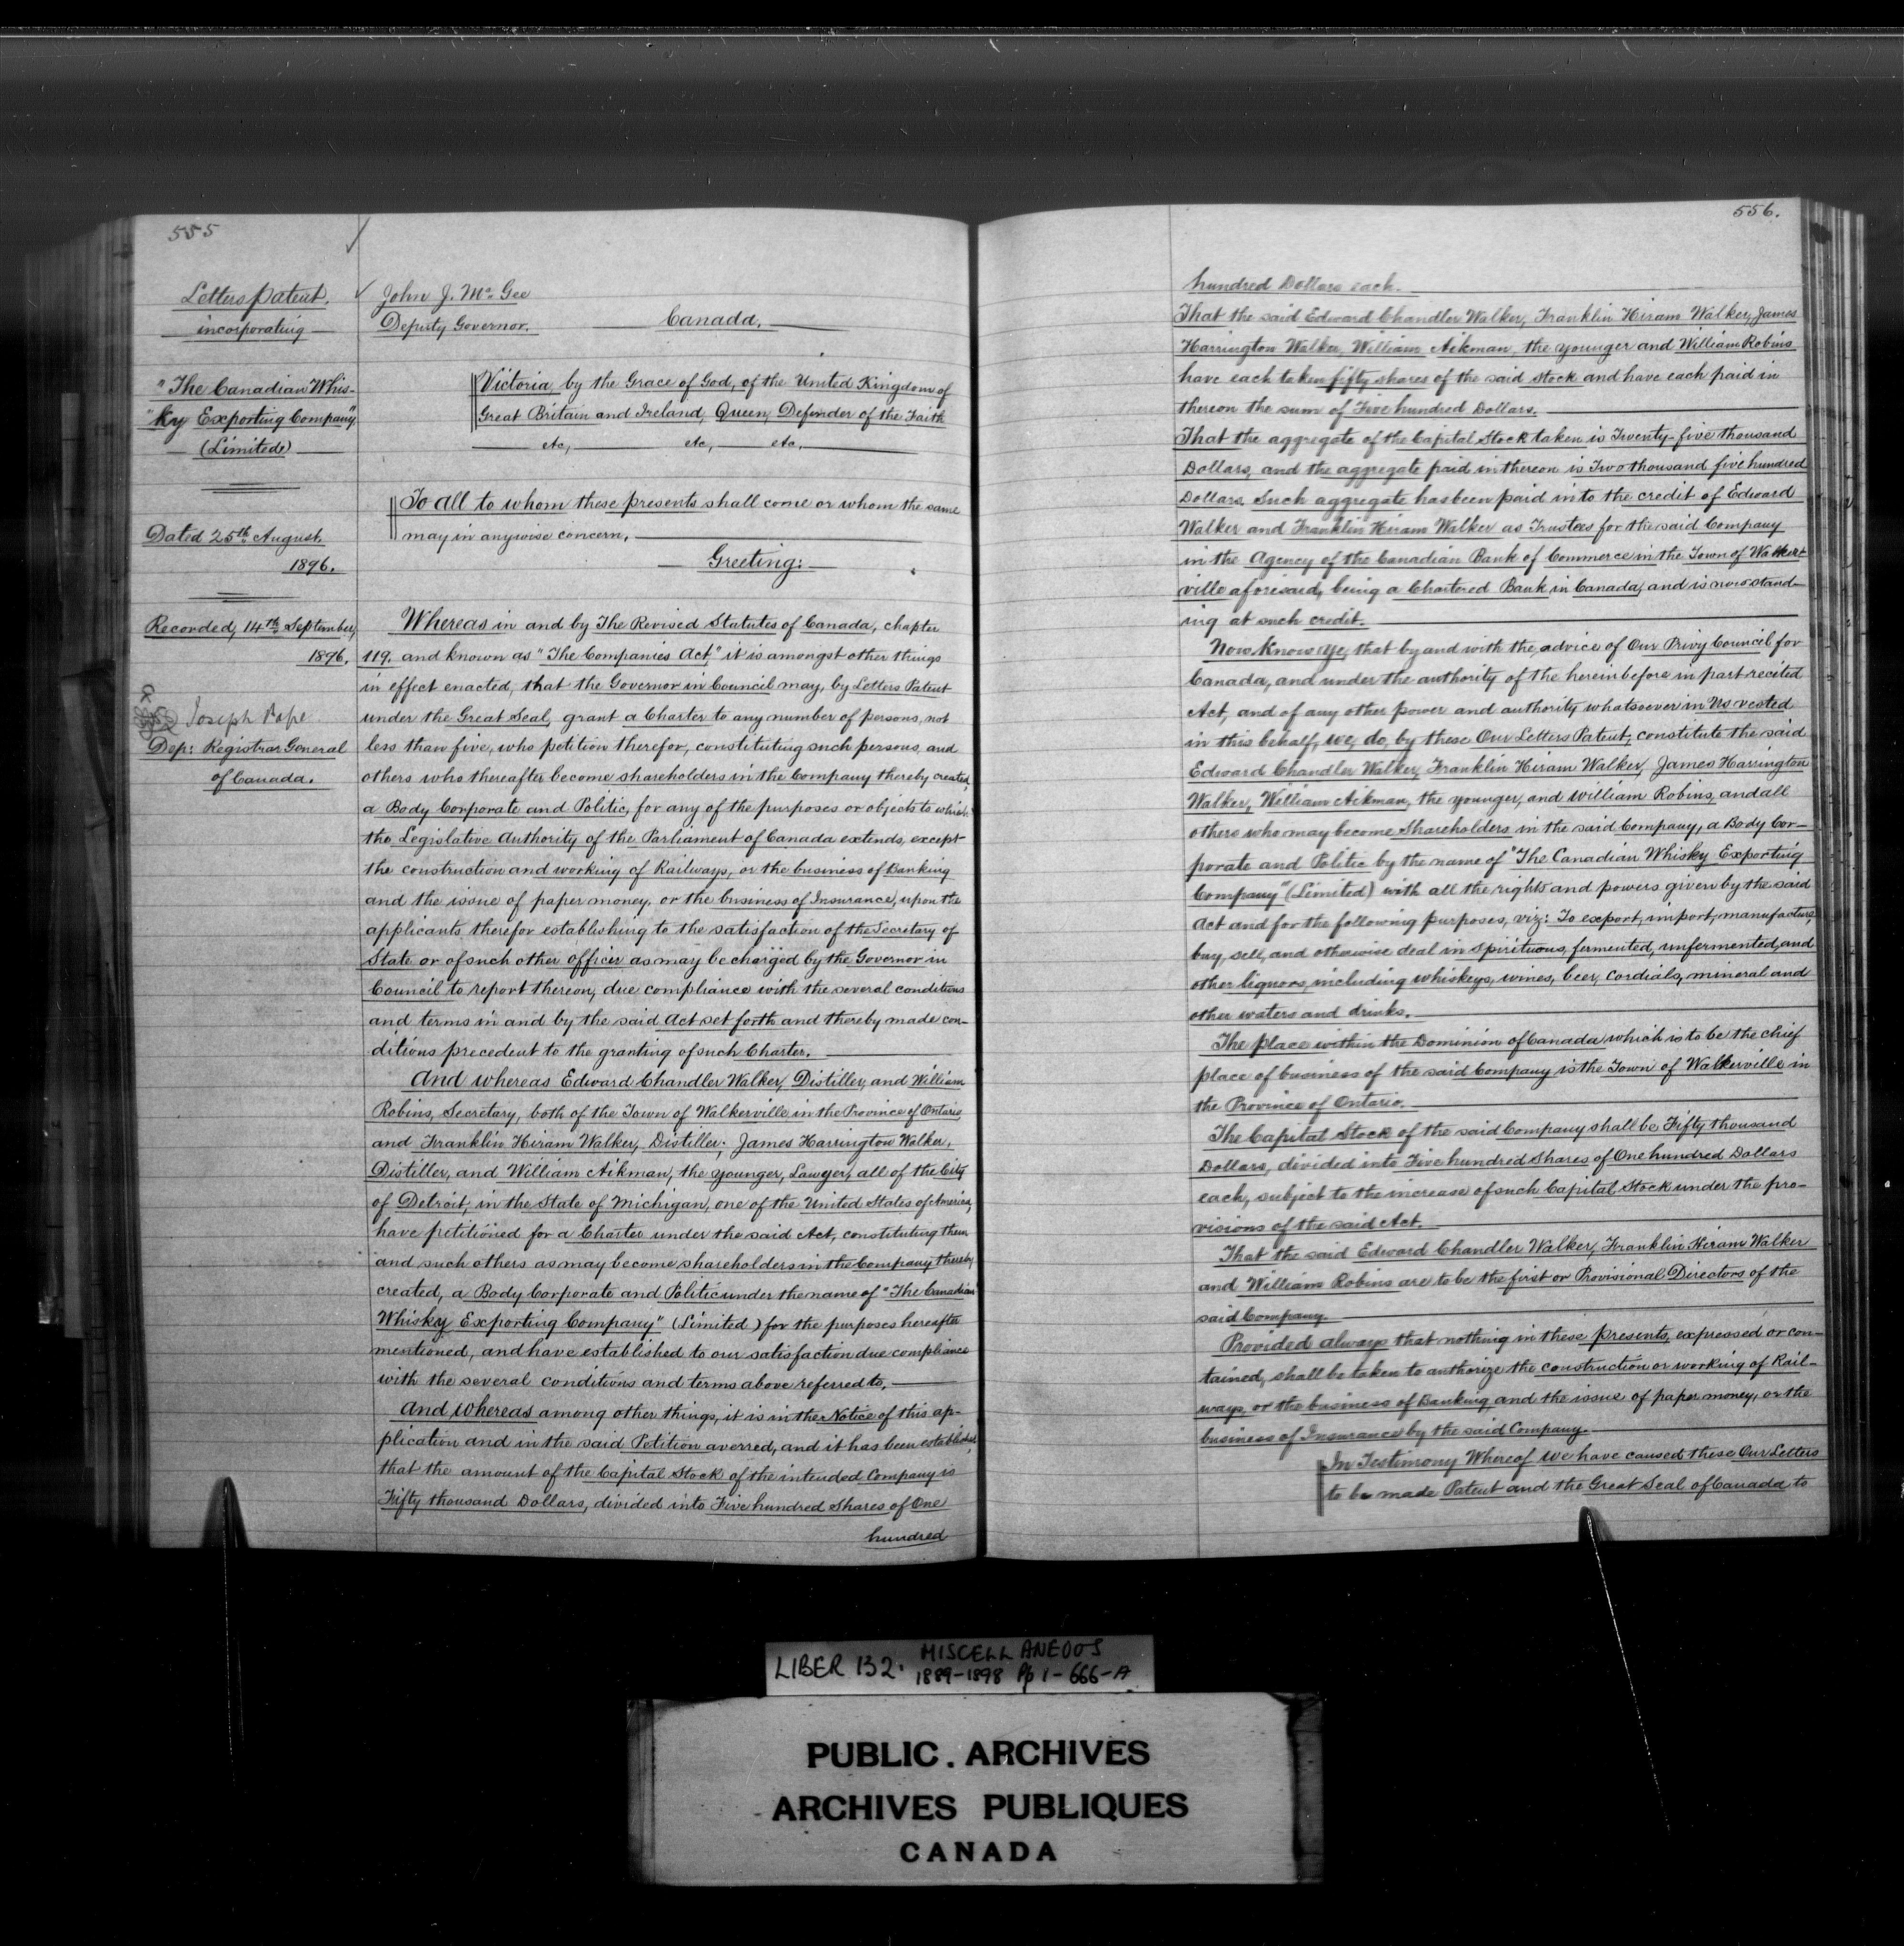 555
Letters patent.
incorporating
"The Canadian Whis-
"ky Exporting Company"
(Limited)
Dated 25th August.
1896.
Recorded, 14th September,
1896.
Joseph Pope
Dep: Registrar General
of Canada.
John J. McGee
Deputy Governor.
Canada.
Victoria by the Grace of God, of the United Kingdom of
Great Britain and Ireland, Queen, Defender of the Faith
etc, etc, etc.
To all to whom these presents shall come or whom the same
may in anywise concern.
Greeting:
Whereas in and by The Revised Statutes of Canada, chapter
119. and known as "The Companies Act," it is amongst other things
in effect enacted, that the Governor in Council may, by Letters Patent
under the Great Seal, grant a Charter to any number of persons, not
less than five, who petition therefor, constituting such persons, and
others who thereafter become shareholders in the Company thereby created,
a Body Corporate and Politic, for any of the purposes or objects to which
the Legislative Authority of the Parliament of Canada extends, except
the construction and working of Railways, or the business of Banking
and the issue of paper money, or the business of Insurance, upon the
applicants therefor establishing to the satisfaction of the Secretary of
State or of such other officer as may be charged by the Governor in
Council to report thereon, due compliance with the several conditions
and terms in and by the said Act set forth and thereby made con-
ditions precedent to the granting of such Charter.
And whereas Edward Chandler Walker, Distiller, and William
Robins, Secretary, both of the Town of Walkerville in the Province of Ontario,
and Franklin Hiram Walker, Distiller; James Harrington Walker,
Distiller, and William Aikman, the younger, Lawyer, all of the City
of Detroit, in the State of Michigan, one of the United States of America,
have petitioned for a Charter under the said Act, constituting them
and such others as may become shareholders in the Company thereby
created, a Body Corporate and Politic under the name of "The Canadian
Whisky Exporting Company" (Limited) for the purposes hereafter
mentioned, and have established to our satisfaction due compliance
with the several conditions and terms above referred to.
And Whereas among other things, it is in the Notice of this ap-
plication and in the said Petition averred, and it has been established,
that the amount of the Capital Stock of the intended Company is
Fifty thousand Dollars, divided into Five hundred Shares of One
hundred
556.
hundred Dollars each.
That the said Edward Chandler Walker, Franklin Hiram Walker, James
Harrington Walker, William Aikman, the younger and William Robins
have each taken fifty shares of the said stock and have each paid in
thereon the sum of Five hundred Dollars.
That the aggregate of the Capital Stock taken is Twenty-five thousand
Dollars, and the aggregate paid in thereon is Two thousand five hundred
Dollars. Such aggregate has been paid in to the credit of Edward
Walker and Franklin Hiram Walker as Trustees for the said Company
in the Agency of the Canadian Bank of Commerce in the Town of Walker-
ville aforesaid, being a Chartered Bank in Canada, and is now stand-
ing at such credit.
Now Know Ye, that by and with the advice of Our Privy Council for
Canada, and under the authority of the hereinbefore in part recited
Act, and of any other power and authority whatsoever in Us vested
in this behalf, we, do, by these Our Letters Patent, constitute the said
Edward Chandler Walker, Franklin Hiram Walker, James Harrington
Walker, William Aikman, the younger, and William Robins, and all
others who may become Shareholders in the said Company, a Body Cor-
porate and Politic by the name of "The Canadian Whisky Exporting
Company" (Limited) with all the rights and powers given by the said
Act and for the following purposes, viz: To export, import, manufacture,
buy, sell, and otherwise deal in spirituous, fermented, unfermented, and
other liquors, including whiskeys, wines, beer, cordials, mineral and
other waters and drinks.
The place within the Dominion of Canada which is to be the chief
place of business of the said Company is the Town of Walkerville in
the Province of Ontario.
The Capital Stock of the said Company shall be Fifty thousand
Dollars, divided into Five hundred Shares of One hundred Dollars
each, subject to the increase of such Capital Stock under the pro-
visions of the said Act.
That the said Edward Chandler Walker, Franklin Hiram Walker
and William Robins are to be the first or Provisional Directors of the
said Company.
Provided always that nothing in these presents, expressed or con-
tained, shall be taken to authorize the construction or working of Rail-
ways, or the business of Banking and the issue of paper money, or the
business of Insurance by the said Company.
In Testimony Whereof we have caused these Our Letters
to be made Patent and the Great Seal of Canada to
LIBER 132. MISCELLANEOUS
1889-1898 Pp 1-666-A
PUBLIC. ARCHIVES
ARCHIVES PUBLIQUES
CANADA